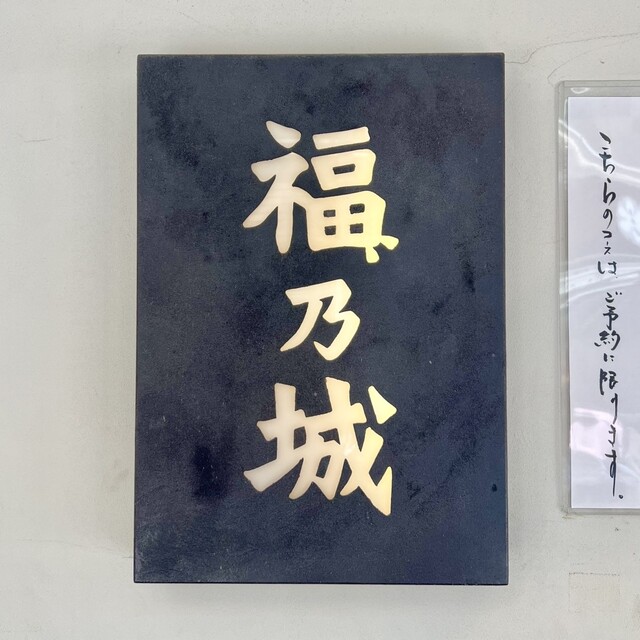 こちらのコースはご予約に限ります。
福乃城